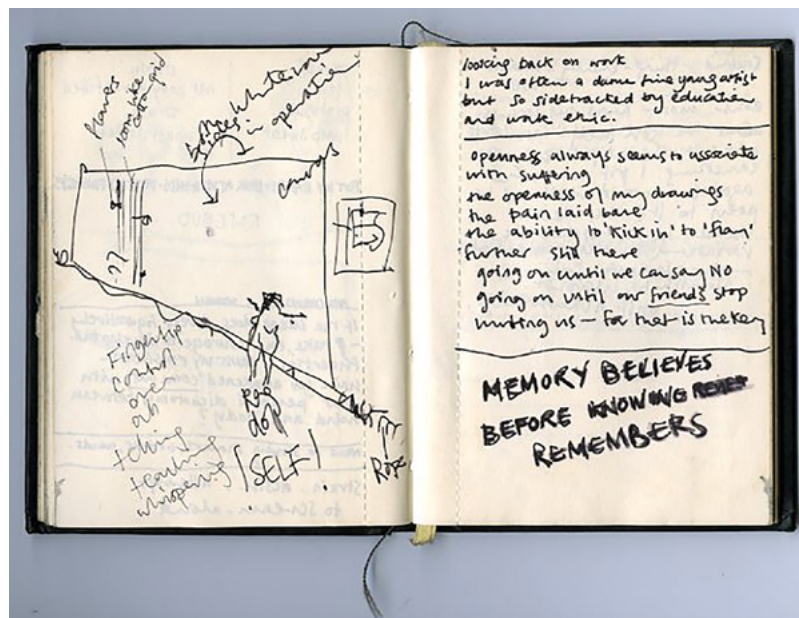 looking like
Canvas
Fingertip
control
on an
teaching
whispering
Rag
doll
[SELF]
Rope
looking back on work
I was often a damn fine young artist
but so sidetracked by education
and work ethic.
openness always seems to associate
with suffering
the openness of my drawings
the pain laid bare
the ability to 'kick in' to 'flay'
further still there
going on until we can say NO
going on until our friends stop
inviting us — for that is the key
MEMORY BELIEVES
BEFORE KNOWING
REMEMBERS